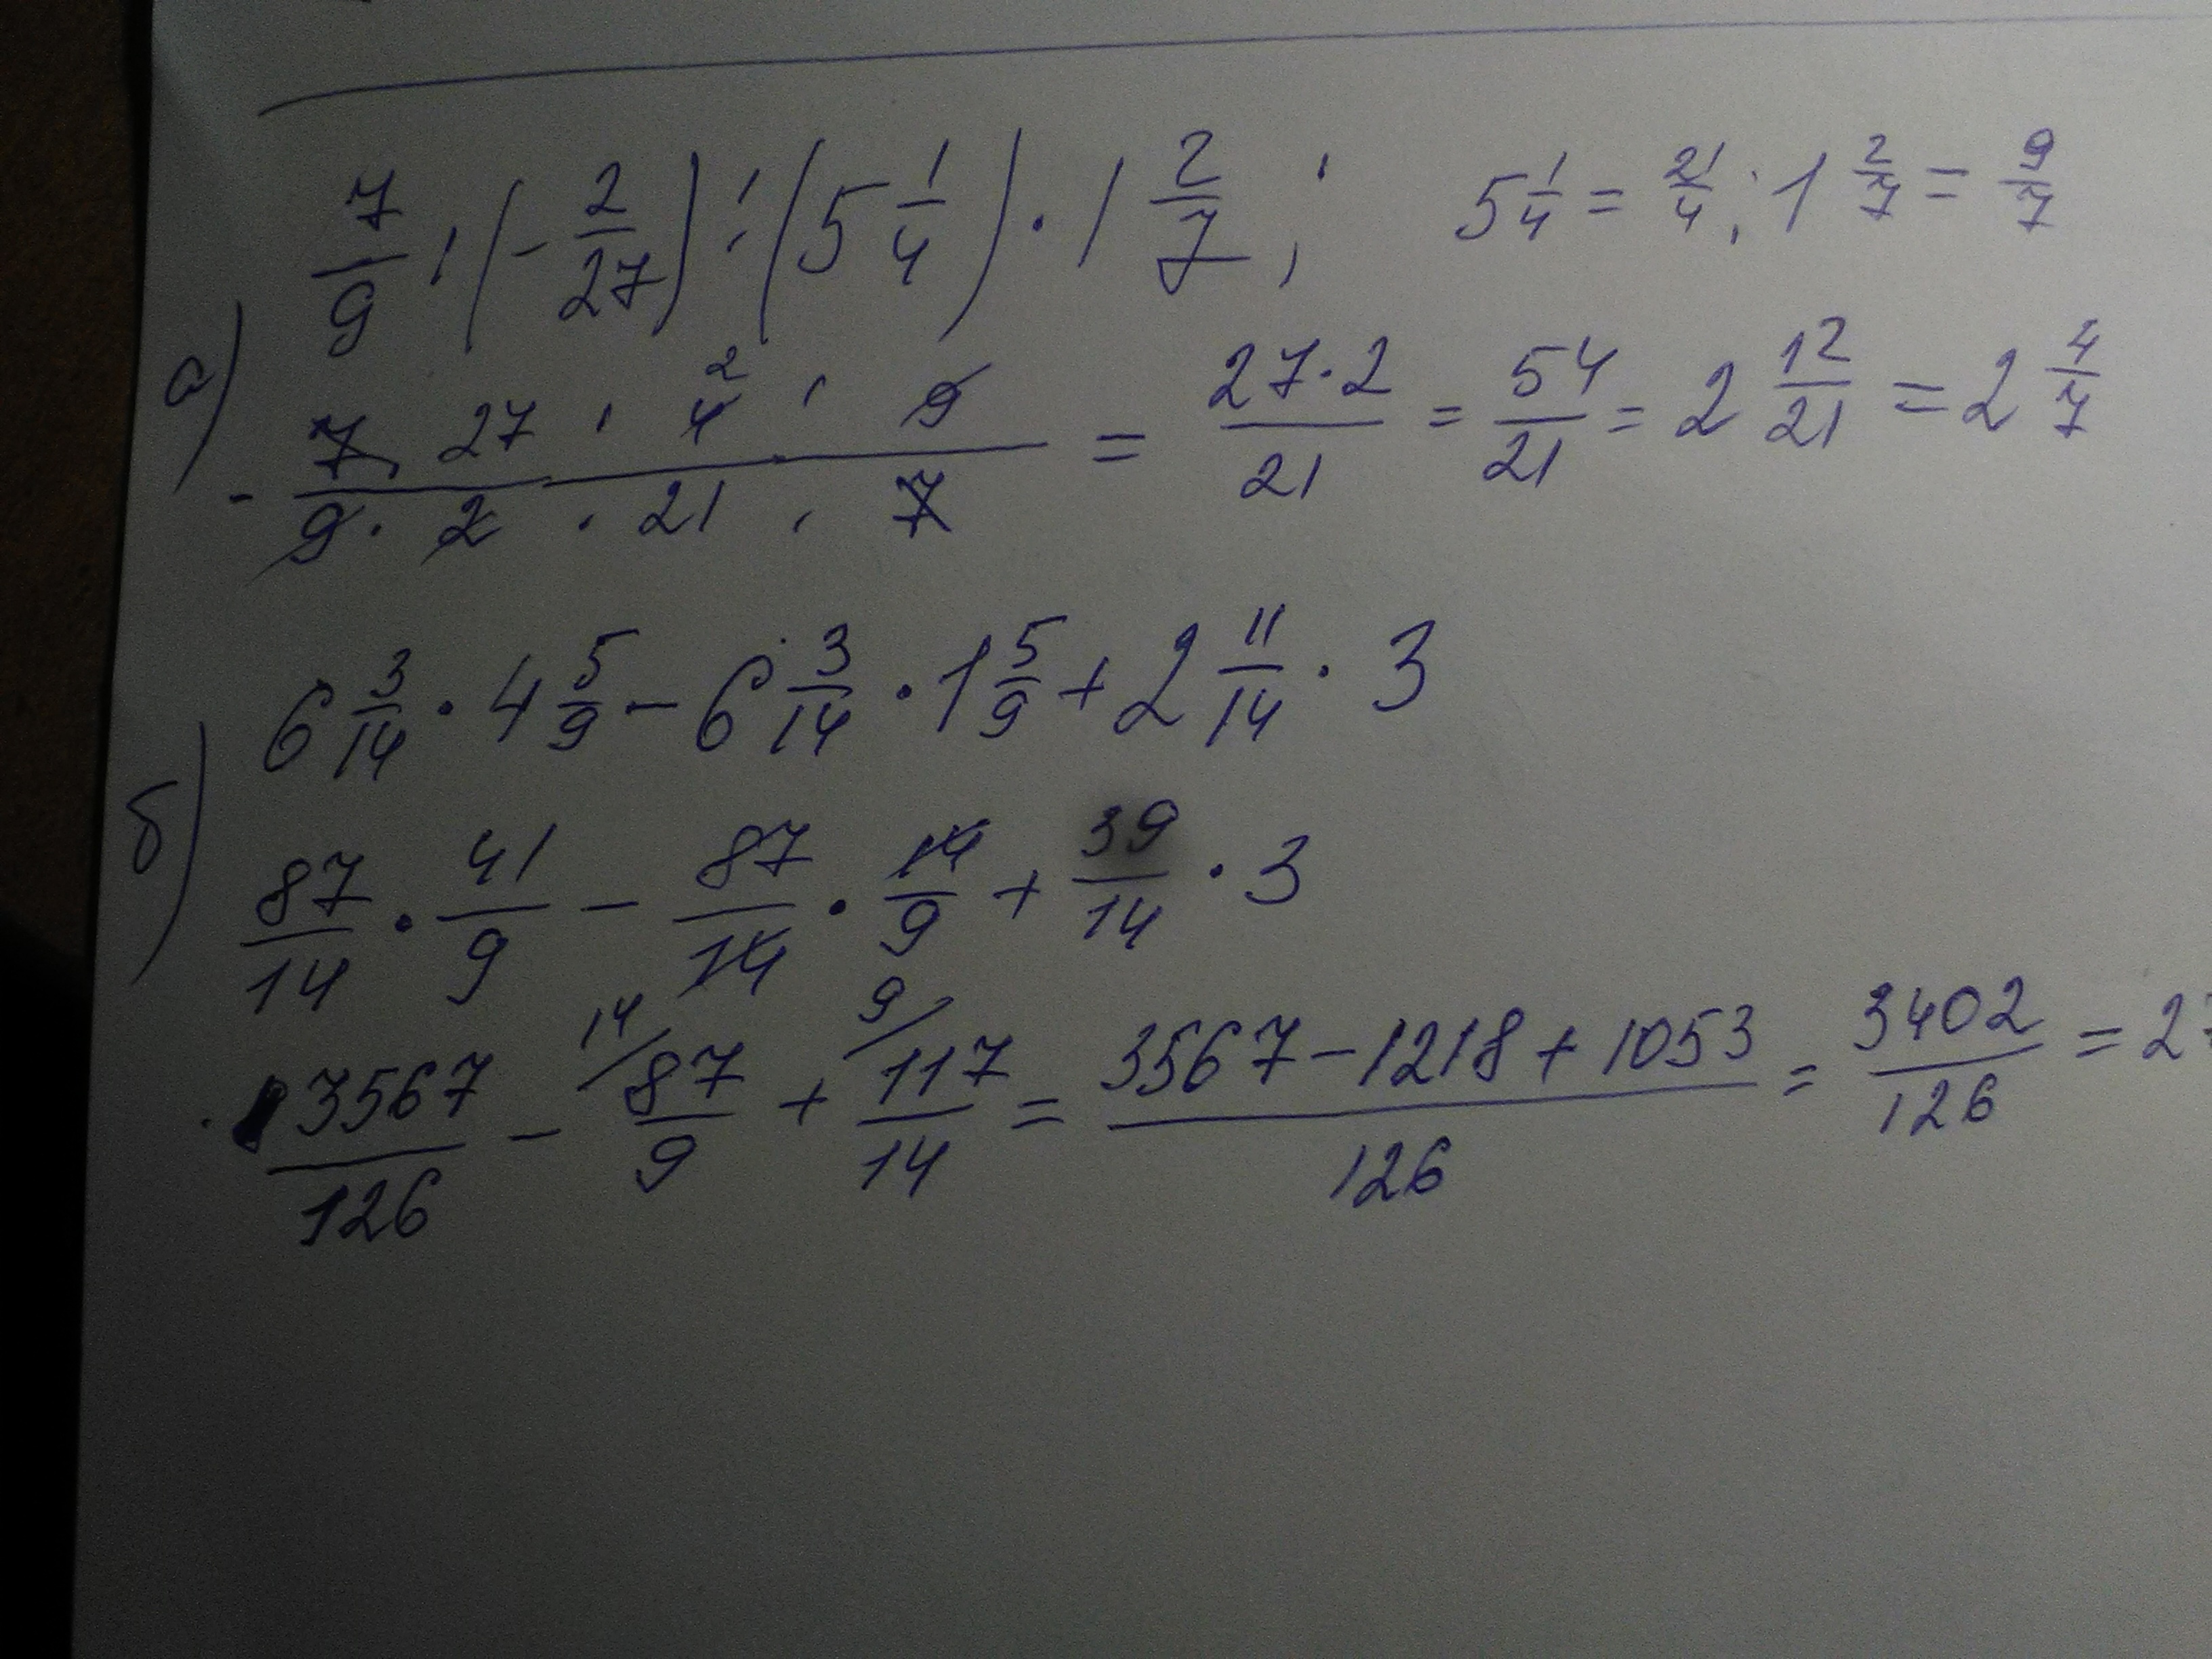 7/9 : (- 2/27) : (5 1/4) · 1 2/7 ; 5 1/4 = 21/4 ; 1 2/7 = 9/7
а) - (7 · 27 · 4 · 9)/(9 · 2 · 21 · 7) = (27·2)/21 = 54/21 = 2 12/21 = 2 4/7
2
6 3/14 · 4 5/9 - 6 3/14 · 1 5/9 + 2 11/14 · 3
б) 87/14 · 41/9 - 87/14 · 14/9 + 39/14 · 3
14/ 9/
3567/126 - 87/9 + 117/14 = (3567 - 1218 + 1053)/126 = 3402/126 = 2